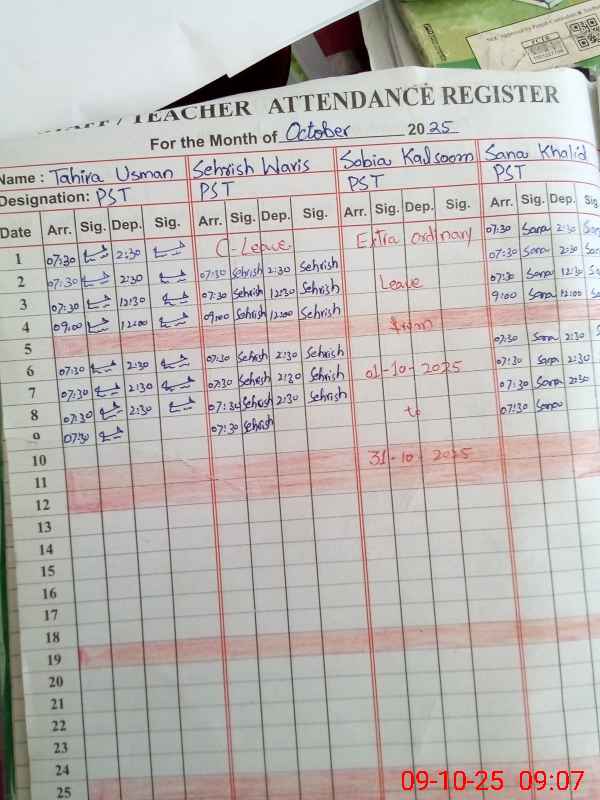 STAFF / TEACHER ATTENDANCE REGISTER
For the Month of October 2025
Name : Tahira Usman Sehrish Waris Sobia Kalsoom Sana Khalid
Designation: PST PST PST PST
Date Arr. Sig. Dep. Sig. Arr. Sig. Dep. Sig. Arr. Sig. Dep. Sig. Arr. Sig. Dep. Sig.
1 07:30 2:30 C-Leave Extra ordinary 07:30 Sana 2:30 Sana
2 07:30 2:30 07:30 Sehrish 2:30 Sehrish 07:30 Sana 2:30 Sana
3 07:30 12:30 07:30 Sehrish 12:30 Sehrish Leave 07:30 Sana 12:30 Sana
4 09:00 12:00 09:00 Sehrish 12:00 Sehrish 9:00 Sana 12:00 Sana
5 from
6 07:30 2:30 07:30 Sehrish 2:30 Sehrish 07:30 Sana 2:30 Sana
7 07:30 2:30 07:30 Sehrish 2:30 Sehrish 01-10-2025 07:30 Sana 2:30
8 07:30 2:30 07:30 Sehrish 2:30 Sehrish 07:30 Sana 2:30
9 07:30 07:30 Sehrish to 07:30 Sana
10
11 31-10-2025
12
13
14
15
16
17
18
19
20
21
22
23
24
25
09-10-25 09:07